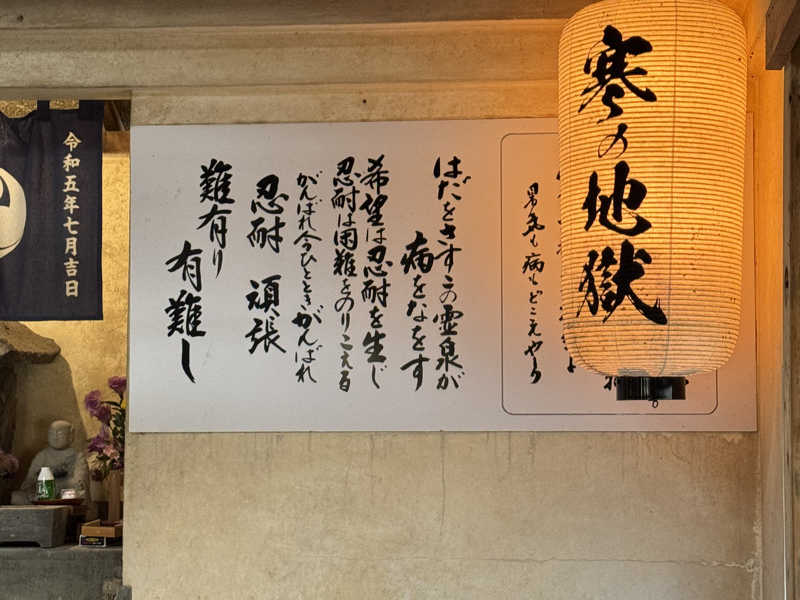 寒の地獄
男気も病もどこえやら
はだをさすこの霊泉が
病をなをす
希望は忍耐を生じ
忍耐は困難をのりこえる
がんばれ今ひとときがんばれ
忍耐 頑張
難有り
有難し
令和五年七月吉日